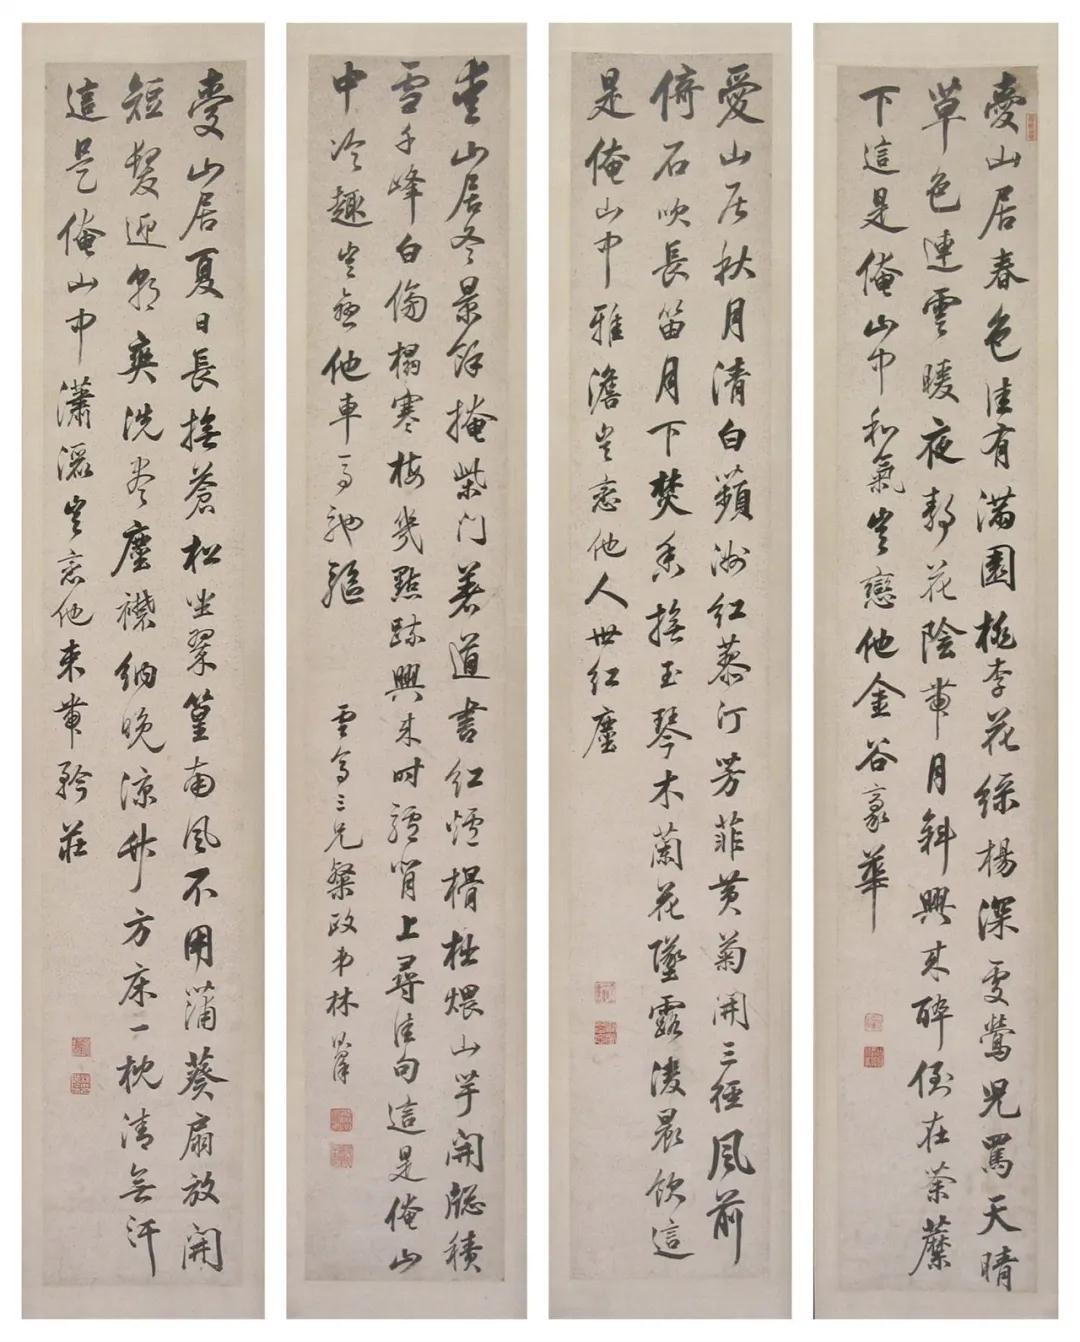 愛山居春色佳有滿園桃李花綠楊深處鶯兒罵天晴
草色連雲暖夜靜花陰帶月斜興來醉倒在荼蘼
下這是俺山中和氣豈戀他金谷豪華
愛山居秋月清白蘋洲紅蓼汀芳菲黃菊開三徑風前
倚石吹長笛月下焚香撫玉琴木蘭花墜露凌晨飲這
是俺山中雅澹豈戀他人世紅塵
愛山居冬景餘掩柴門著道書紅爐榾柮煨山芋開牕積
雪千峰白傍榻寒梅幾點疎興來時驢背上尋佳句這是俺山
中冷趣豈戀他車馬馳驅
三兄粲政弟林
愛山居夏日長撫蒼松坐翠篁南風不用蒲葵扇放開
短髮迎朝爽洗盡塵襟納晚涼竹方床一枕清無汗
這是俺山中瀟灑豈戀他束帶矜莊